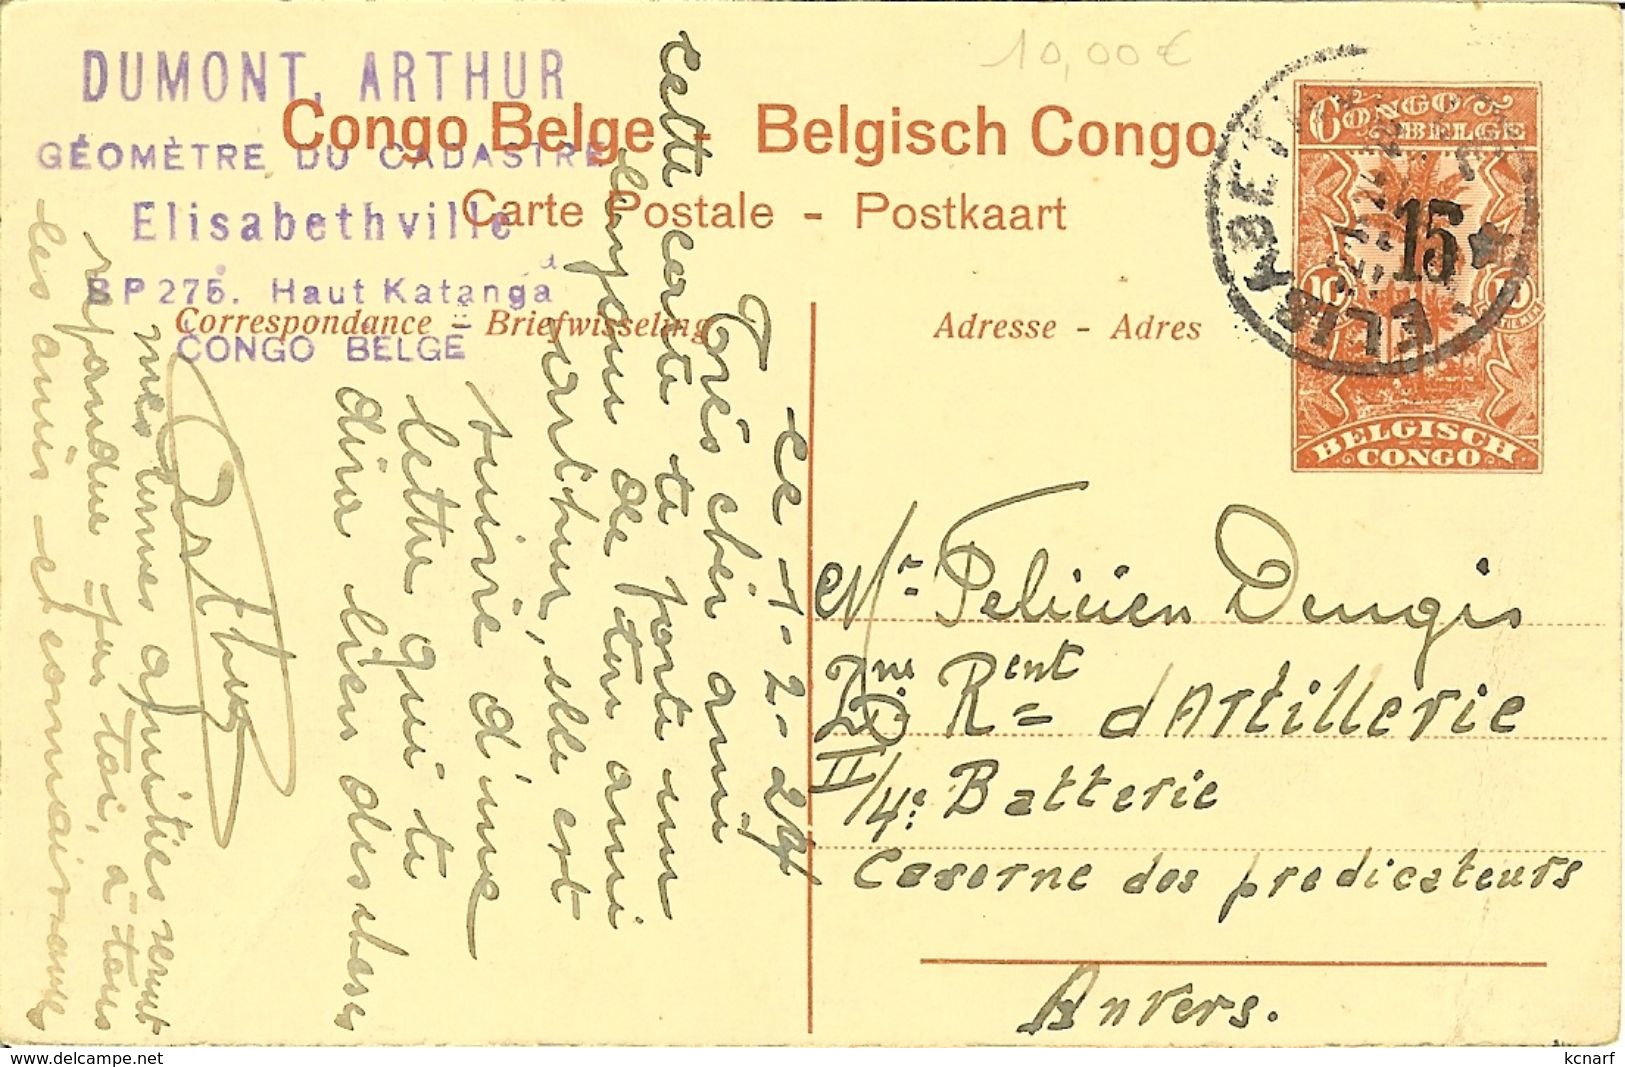 10,00 €
DUMONT, ARTHUR
GÉOMÈTRE DU CADASTRE
Elisabethville
BP 275. Haut Katanga
CONGO BELGE
Congo Belge - Belgisch Congo
Carte Postale - Postkaart
Correspondance - Briefwisseling
Adresse - Adres
CONGO BELGE
15
10
10
BELGISCH CONGO
ce 1-2-24
Très cher ami
cette carte te porte un
bonjour de ton ami
Arthur, elle est
suivie d'une
lettre qui te
dira bien des choses
Arthur
mes bonnes amitiés seront
répandue par toi, à tous
les amis et connaissances
Mr Felicien Dengis
Rent d'Artillerie
II/4e Batterie
Caserne des predicateurs
Anvers.
kcnarf
delcampe.net